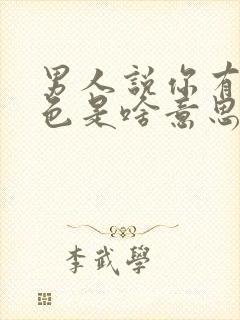 男人説你有
色是啥意思
李武學